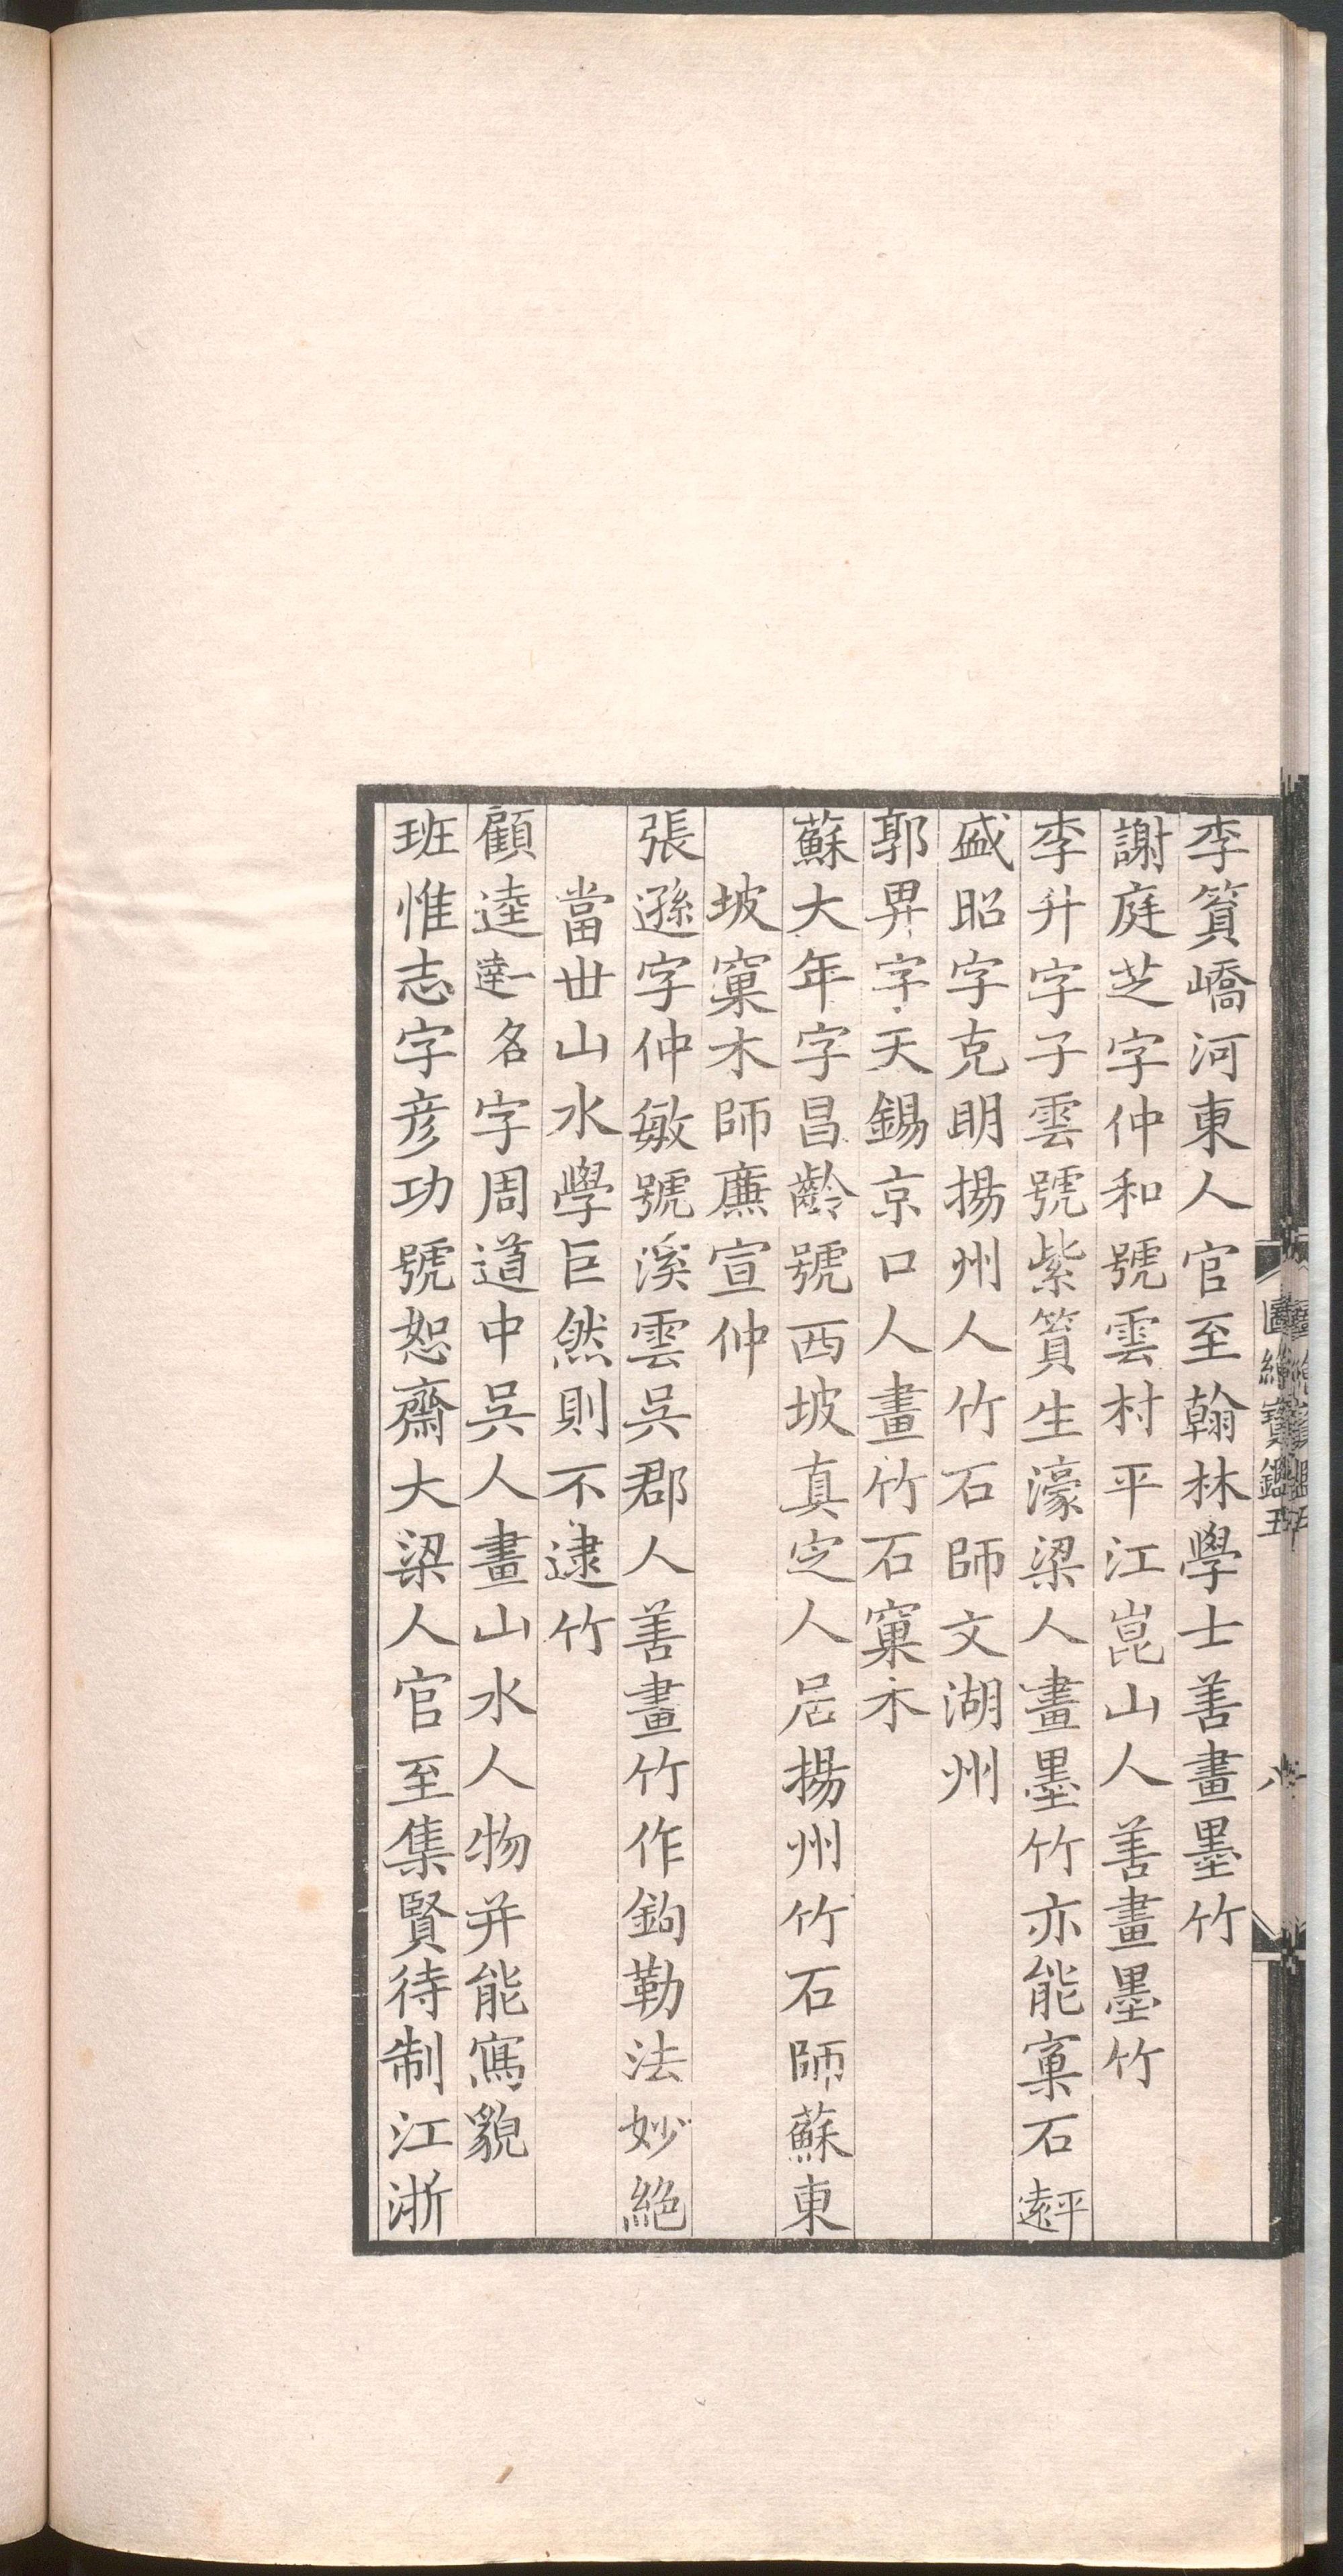 李篔嶠河東人官至翰林學士善畫墨竹
謝庭芝字仲和號雲村平江崑山人善畫墨竹
李升字子雲號紫篔生濠梁人畫墨竹亦能窠石平遠
盛昭字克明揚州人竹石師文湖州
郭畀字天錫京口人畫竹石窠木
蘇大年字昌齡號西坡真定人居揚州竹石師蘇東
坡窠木師廉宣仲
張遜字仲敏號溪雲吳郡人善畫竹作鉤勒法妙絕
當世山水學巨然則不逮竹
顧逵一名達字周道中吳人畫山水人物并能寫貌
班惟志字彥功號恕齋大梁人官至集賢待制江浙
圖繪寶鑑五
八